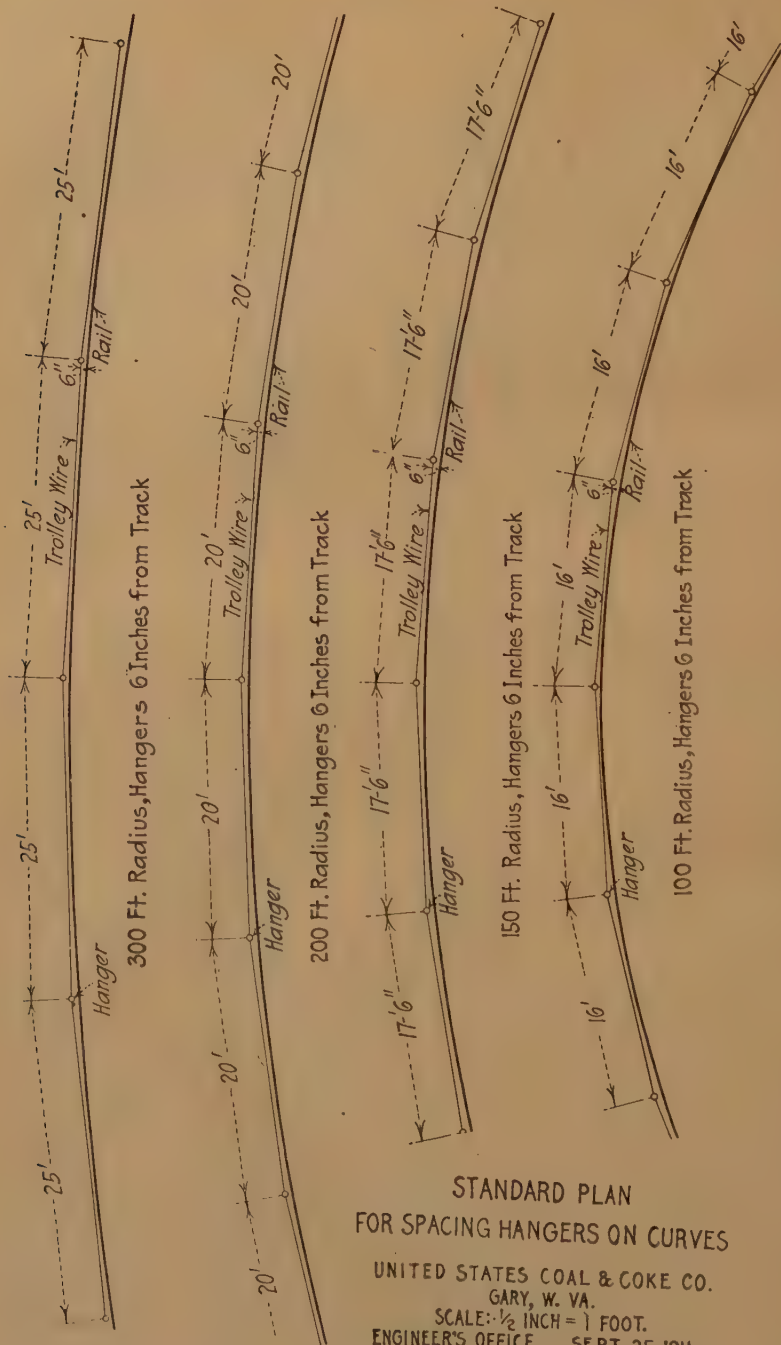 25'
25'
25'
25'
Trolley Wire
6"
Rail
Hanger
300 Ft. Radius, Hangers 6 Inches from Track
20'
20'
20'
20'
20'
20'
Trolley Wire
6"
Rail
Hanger
200 Ft. Radius, Hangers 6 Inches from Track
17'-6"
17'-6"
17'-6"
17'-6"
17'-6"
Trolley Wire
6"
Rail
Hanger
150 Ft. Radius, Hangers 6 Inches from Track
16'
16'
16'
16'
16'
16'
Trolley Wire
6"
Rail
Hanger
100 Ft. Radius, Hangers 6 Inches from Track
STANDARD PLAN
FOR SPACING HANGERS ON CURVES
UNITED STATES COAL & COKE CO.
GARY, W. VA.
SCALE: 1/2 INCH = 1 FOOT.
ENGINEER'S OFFICE SEPT. 25,